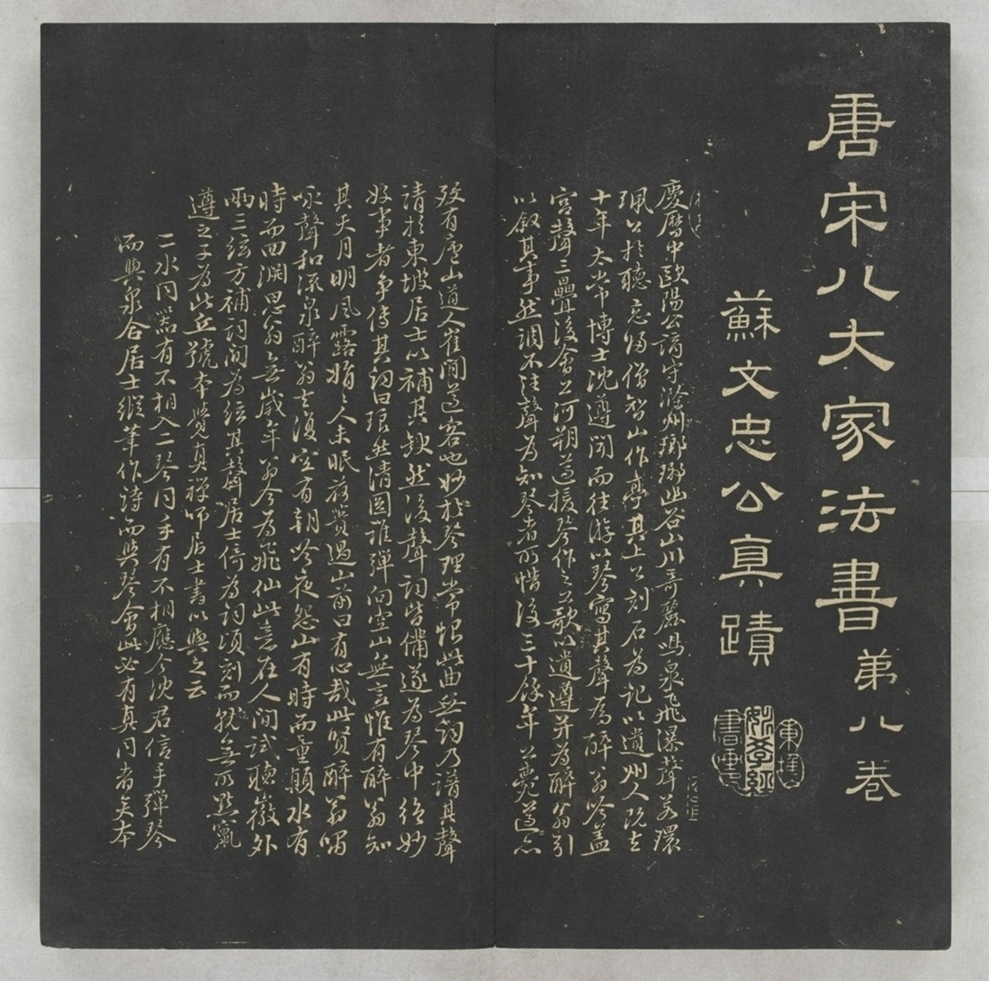 唐宋八大家法書第八卷
蘇文忠公真蹟
慶曆中歐陽公謫守滁州瑯琊幽谷山川奇麗鳴泉飛瀑聲若環
珮公於聽忘歸僧智山作亭其上公刻石為記以遺州人既去
十年太常博士沈遵聞而往游以琴寫其聲為醉翁吟蓋
宮聲三疊後會公河朔遵援琴作之公歌以遺遵并為醉翁引
以敘其事然調不注聲為知琴者所惜後三十餘年公薨遵亦
歿有廬山道人崔閒遵客也妙於琴理常恨此曲無詞乃譜其聲
請於東坡居士以補其缺然後聲詞皆備遂為琴中絕妙
好事者爭傳其詞曰琅然清圜誰彈向空山無言惟有醉翁知
其天月明風露娟娟人未眠荷蕢過山前曰有心哉此賢醉翁嘯
詠聲和流泉醉翁去後空有朝吟夜怨山有時而童顛水有
時而回淵思翁無歲年翁今為飛仙此意在人間試聽徽外
兩三絃方補詞間為絃其聲居士倚為詞頃刻而就無所點竄
遵之子為比丘號本覺真禪師居士書以與之云
二水同器有不相入二琴同手有不相應今沈君信手彈琴
而與泉合居士縱筆作詩而與琴會此必有真同者矣本